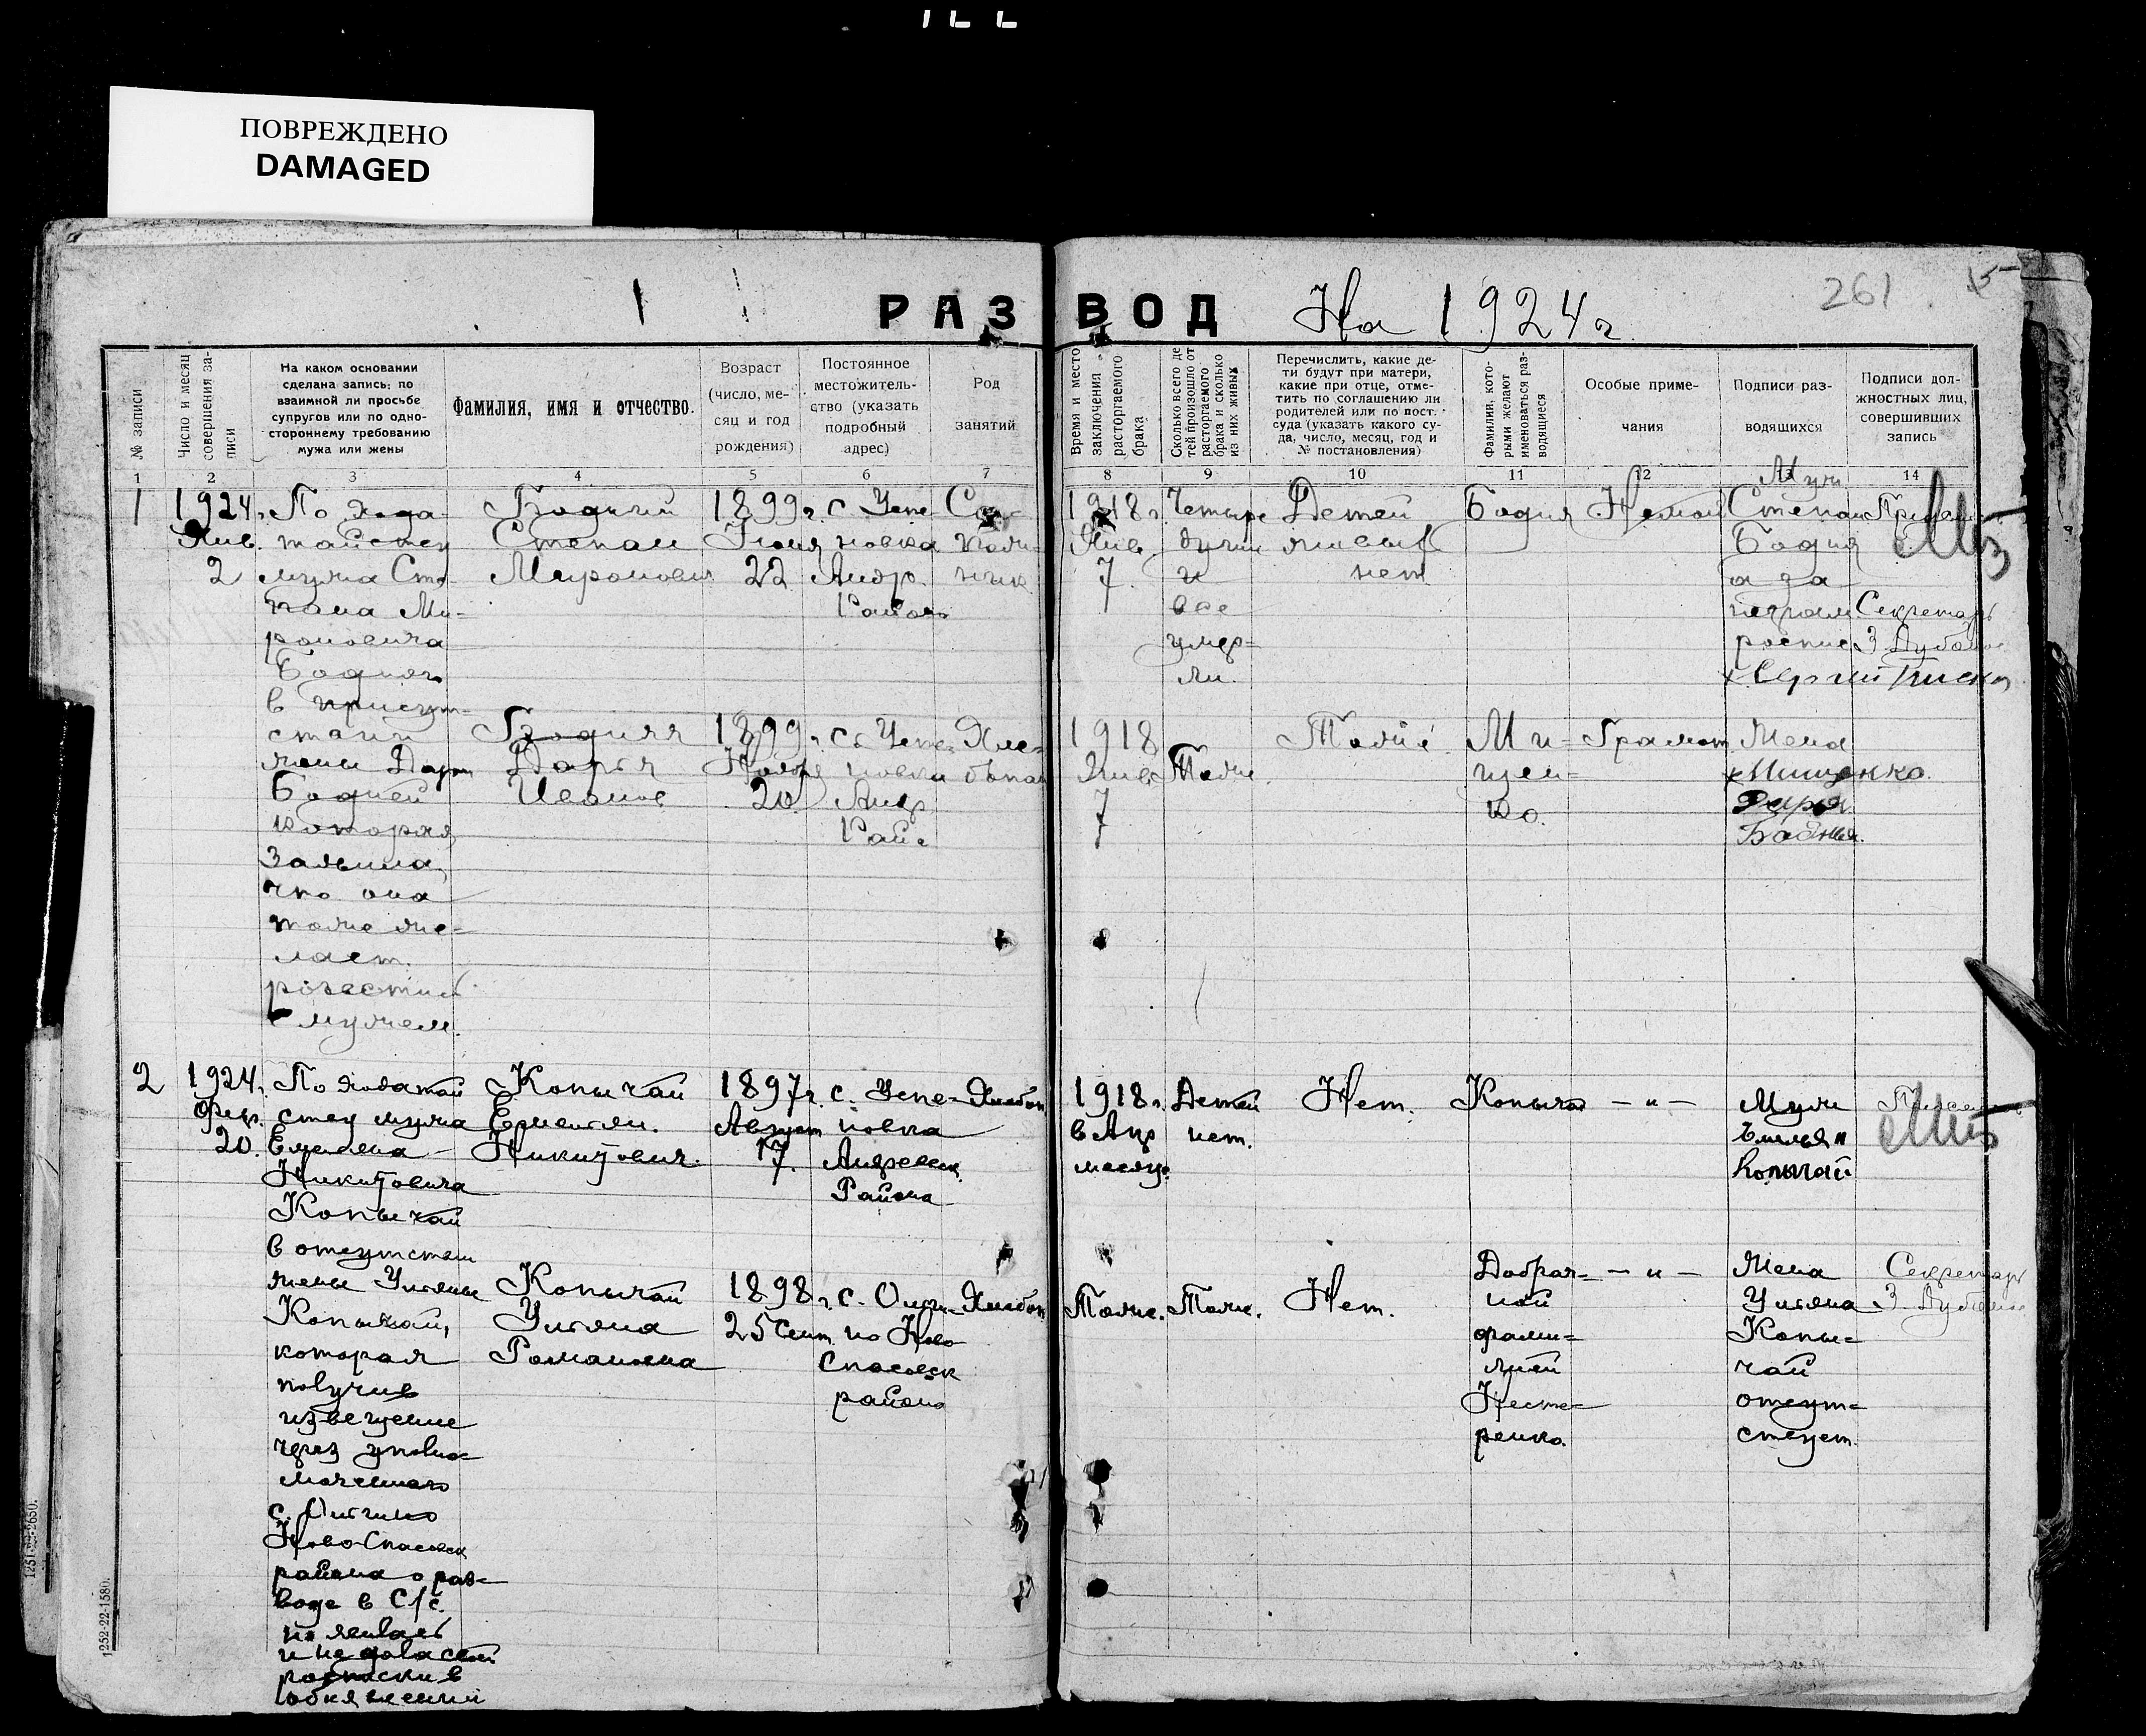 ПОВРЕЖДЕНО
DAMAGED
261
15
1
РАЗВОД На 1924 г.
№ записи
Число и месяц совершения записи
На каком основании
сделана запись: по
взаимной ли просьбе
супругов или по одно-
стороннему требованию
мужа или жены
Фамилия, имя и отчество.
Возраст
(число, ме-
сяц и год
рождения)
Постоянное
местожитель-
ство (указать
подробный
адрес)
Род
занятий
Время и место
заключения
расторгаемого
брака
Сколько всего де
тей произошло от
расторгаемого
брака и сколько
из них живых
Перечислить, какие де-
ти будут при матери,
какие при отце, отме-
тить по соглашению ли
родителей или по пост.
суда (указать какого су-
да, число, месяц, год и
№ постановления)
Фамилии, кото-
рыми желают
именоваться раз-
водящиеся
Особые приме-
чания
Подписи раз-
водящихся
Подписи дол-
жностных лиц,
совершивших
запись
1 2 3 4 5 6 7 8 9 10 11 12 13 14
1
1924 г.
Янв.
2
По хода-
тайству
мужа Сте-
пана Ми-
роновича
Бодня
в присут-
ствии
жены Дарьи
Бодней
которая
заявила,
что она
тоже же-
лает
развестись
с мужем.
Степан
Миронович
1899 г.
22
с. Успе
новка
Андр.
Района
1918 г.
Янв.
7
Четыре
души
и
все
умер-
ли.
Детей
живых
нет
Бодня
Муж
Степан
Бодня
а за
неграм
роспис
Секретарь
З. Дубов
Бодняя
Дарья
Иванов
1899 г.
20
с. Успе-
новка
Андр
Рай.
Хле-
бопаш
1918
Янв.
7
Тоже.
Тоже
Ми-
щен-
ко.
Грамот
Жена
Мищенко
Дарья
Бодняя.
2
1924 г.
Февр.
20.
По ходатай
ству мужа
Емельяна
Никитовича
Копычай
в отсутствии
жены Ульяны
Копычай,
которая
получив
извещение
через уполно-
моченного
с. Ольгино
Ново-Спасовск
района о раз-
воде в С/с.
не явилась
и не дала своей
росписки в
объявлении
Копычай
Емельян.
Никитович.
1897 г.
Август
17.
с. Успе-
новка
Андреевск.
Района
Хлебоп
1918 г.
в Апр
месяце.
Детей
нет.
Нет.
Копычай
— „ —
Муж
Емельян
Копычай
Копычай
Ульяна
Романовна
1898 г.
25 Сент.
с. Ольги-
но Ново
Спасовск
района
Хлебоп
Тоже.
Тоже.
Нет.
Добрач-
ной
фами-
лией
Несте-
ренко.
— „ —
Жена
Ульяна
Копы-
чай
отсут-
ствует.
Секретарь
З. Дубов
1252-22-1580.